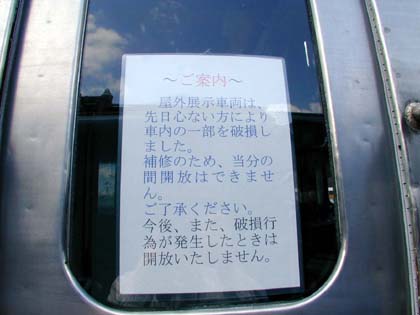 ～ご案内～
屋外展示車両は、
先日心ない方により
車内の一部を破損し
ました。
補修のため、当分の
間開放はできませ
ん。
ご了承ください。
今後、また、破損行
為が発生したときは
開放いたしません。